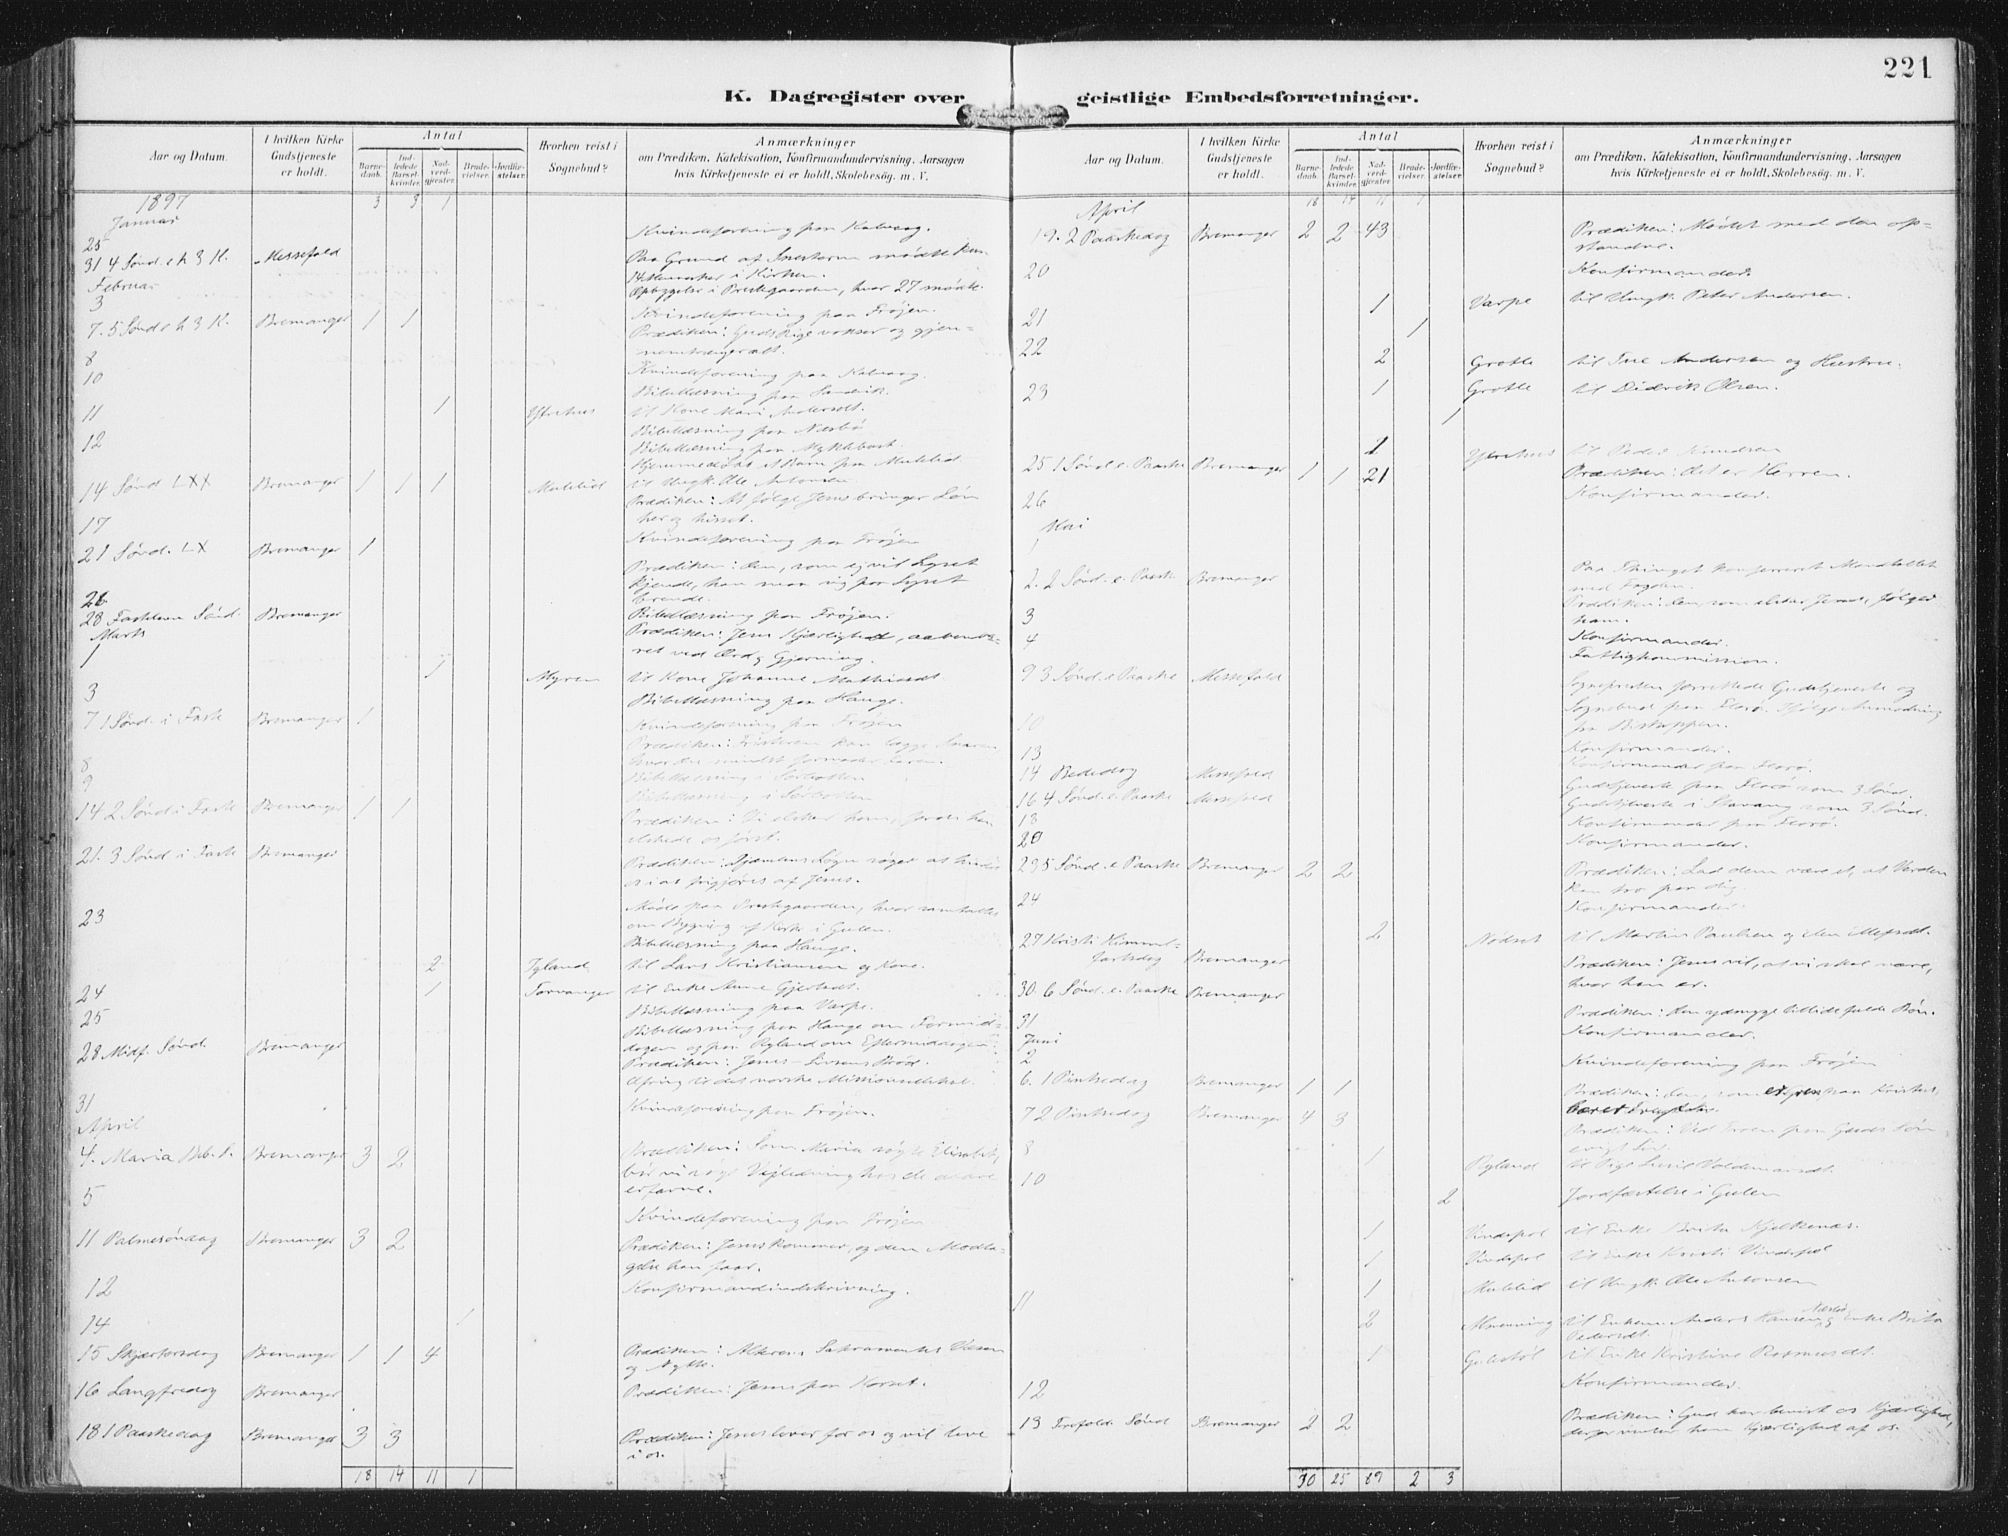 221
K. Dagregister over geistlige Embedsforretninger.
Aar og Datum.
I hvilken Kirke Gudstjeneste er holdt.
Antal
Barne-daab.
Ind-ledede Barsel-kvinder.
Nad-verd-gjester.
Brude-vielser.
Jordfæ-stelser.
Hvorhen reist i Sognebud?
Anmærkninger
om Prædiken, Katekisation, Konfirmandundervisning, Aarsagen
hvis Kirketjeneste ei er holdt, Skolebesøg. m. V.
1897 3 3 1
Januar
25 Kvindeforening paa Kalvaag.
31 4 Sønd. e. h. 3 K. Messefold Paa Grund af Snestorm mødte kun
14 Mennesker i Kirken.
Opbyggelse i Prestgaarden, hvor 27 mødte.
Februar
3 Kvindeforening paa Frøjen.
7. 5 Sønd. e. h. 3 K. Bremanger 1 1 Prædiken: Guds Rige vokser og gjen-
nemtrænger alt.
8 Kvindeforening paa Kalvaag.
10 Bibellæsning paa
11 1 Ytrehus til Kone Mari Andersdt.
Bibellæsning paa Næsbø
12 Bibellæsning paa Myklebust.
Hjemmedøbt et Barn paa Mulelid
14 Sønd. LXX Bremanger 1 1 1 Mulelid til Ungk. Ole Antonsen
Prædiken: At følge Jesus bringer Løn
her og hisset.
17 Kvindeforening paa Frøjen
21 Sønd. LX Bremanger 1 Prædiken: Den, som ej vil Lyset
kjende, han maa sig paa Lyset
brende.
26 Bibellæsning paa Frøjen.
28 Fastelavn Sønd. Bremanger Prædiken: Jesu Kjærlighed, aabenba-
ret ved Ord og Gjerning.
Marts
1 1 Myren til Kone Johanne Mathiasdt
3 Bibellæsning paa Hauge.
Kvindeforening paa Frøjen
7 1 Sønd. i Faste Bremanger 1 Prædiken: Fristeren kan lægge Snaren
hvor du mindst formoder Faren.
8 Bibellæsning i Sørbotten
9 Bibellæsning i Sørbotten
14 2 Sønd. i Faste Bremanger 1 1 Prædiken: Vi elsker ham, fordi han
elskede os først.
21. 3 Sønd. i Faste Bremanger
os i at frigjøres af Jesus.
23 Møde paa Prestgaarden, hvor samtaltes
om Bygning af Kirke i Gulen.
Bibellæsning paa Hauge.
2 Igland til Lars Kristiansen og Kone.
24 1 Torvanger til Enke Anne Gjertsdt.
25 Bibellæsning paa Varpe.
Bibellæsning paa Hauge om Formid-
dagen og paa Ryland om Eftermiddagen.
28 Midf. Sønd. Bremanger Prædiken: Jesus – Livsens Brød.
Ofring til det norske Missionsselskab.
31 Kvindeforening paa Frøjen.
April
4. Maria Beb. D. Bremanger 3 2 Prædiken: Som Maria søgte Elisabet,
bør vi søge Vejledning hos de ældre
erfarne.
5 Kvindeforening paa Frøjen
11 Palmesøndag Bremanger 3 2 Prædiken: Jesus kommer, og den Modta-
gelse han faar.
12 Konfirmandindskrivning.
14 1
15 Skjærtorsdag Bremanger 1 1 4 Prædiken: Alterens Sakramentes Væsen
og Nytte.
16 Langfredag Bremanger Prædiken: Jesus paa Korset.
18 1 Paaskedag Bremanger 3 3 Prædiken: Jesus lever for os og vil leve
i os.
18 14 11 1
Aar og Datum.
I hvilken Kirke Gudstjeneste er holdt.
Antal
Barne-daab.
Ind-ledede Barsel-kvinder.
Nad-verd-gjester.
Brude-vielser.
Jordfæ-stelser.
Hvorhen reist i Sognebud?
Anmærkninger
om Prædiken, Katekisation, Konfirmandundervisning, Aarsagen
hvis Kirketjeneste ei er holdt, Skolebesøg. m. V.
18 14 11 1
April
19. 2 Paaskedag Bremanger 2 2 43 Prædiken: Mødet med den op-
standne.
20 Konfirmander.
1 Varpe til Ungk. Peter Andersen.
21 1
22 2 Grotle til Andersen og Hustru.
23 1 Grotle til Didrik Olsen.
1
1 Ytrehus til Peder Knudsen
25 1 Sønd. e. Paaske Bremanger 1 1 21 Prædiken: Det er Herren.
26 Konfirmander.
Mai
1 Paa Thinget konfereret Mandtallet
med Fogden.
2. 2 Sønd. e. Paaske Bremanger Prædiken: Den, som elsker Jesus, følger
ham.
3 Konfirmander.
4 Fattigkommission.
9 3 Sønd. e. Paaske Messefold Sognepresten forrettede Gudstjeneste og
Sognebud paa Florø ifølge Anmodning
fra Biskoppen.
10 Konfirmander.
13 Konfirmander paa Florø.
14 Bededag Messefold Gudstjeneste paa Florø som 3 Sønd.
16 4 Sønd. e. Paaske Messefold Gudstjeneste i Stavang som 3 Sønd.
18 Konfirmander paa Florø.
20 Konfirmander.
23 5 Sønd. e. Paaske Bremanger 2 2 Prædiken: Lad dem være et, at Verden
kan tro paa dig.
24 Konfirmander.
2 Nødset til Martin Paulsen og
27 Kristi Himmel-
fartsdag Bremanger Prædiken: Jesus vil, at vi skal være,
hvor han er.
30. 6 Sønd. e. Paaske Bremanger Prædiken: Den ydmyge tillidsfulde Bøn.
31 Konfirmander.
Juni
2 Kvindeforening paa Frøjen
6. 1 Pintsedag Bremanger 1 1
7 2 Pintsedag Bremanger 4 3 Prædiken: Ved Troen paa Guds Søn
evigt Liv.
8 1 Ryland til Pige Valdemarsdt.
10 2 Jordfæstelse i Gulen
1 Vindspol til Enke Brita Kjelkenæs.
1 Vindspol til Enke Kristi Vindspol
1 Mulelid til Ungk. Ole Antonsen
11 2 Almenning til Enkem. Anders Hansen Næsbø og Enke Brita
Pedersdt.
1 Gulestøl til Enke Kristine Rasmusdt.
12 Konfirmander.
13 Trefold. Sønd Bremanger 2 2 Prædiken: Gud har bevist os Kjærlighed,
derfor venter han Kjærlighed af os.
30 25 89 2 3